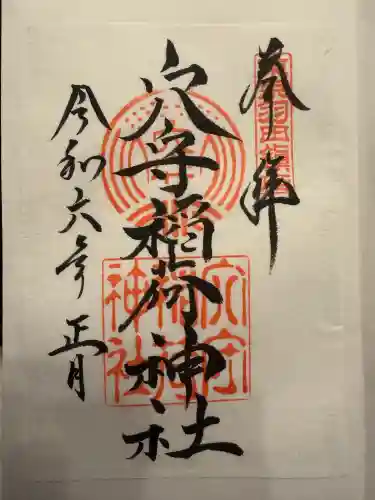 奉拝
穴守稲荷神社
令和六年正月
穴守
稲荷
神社